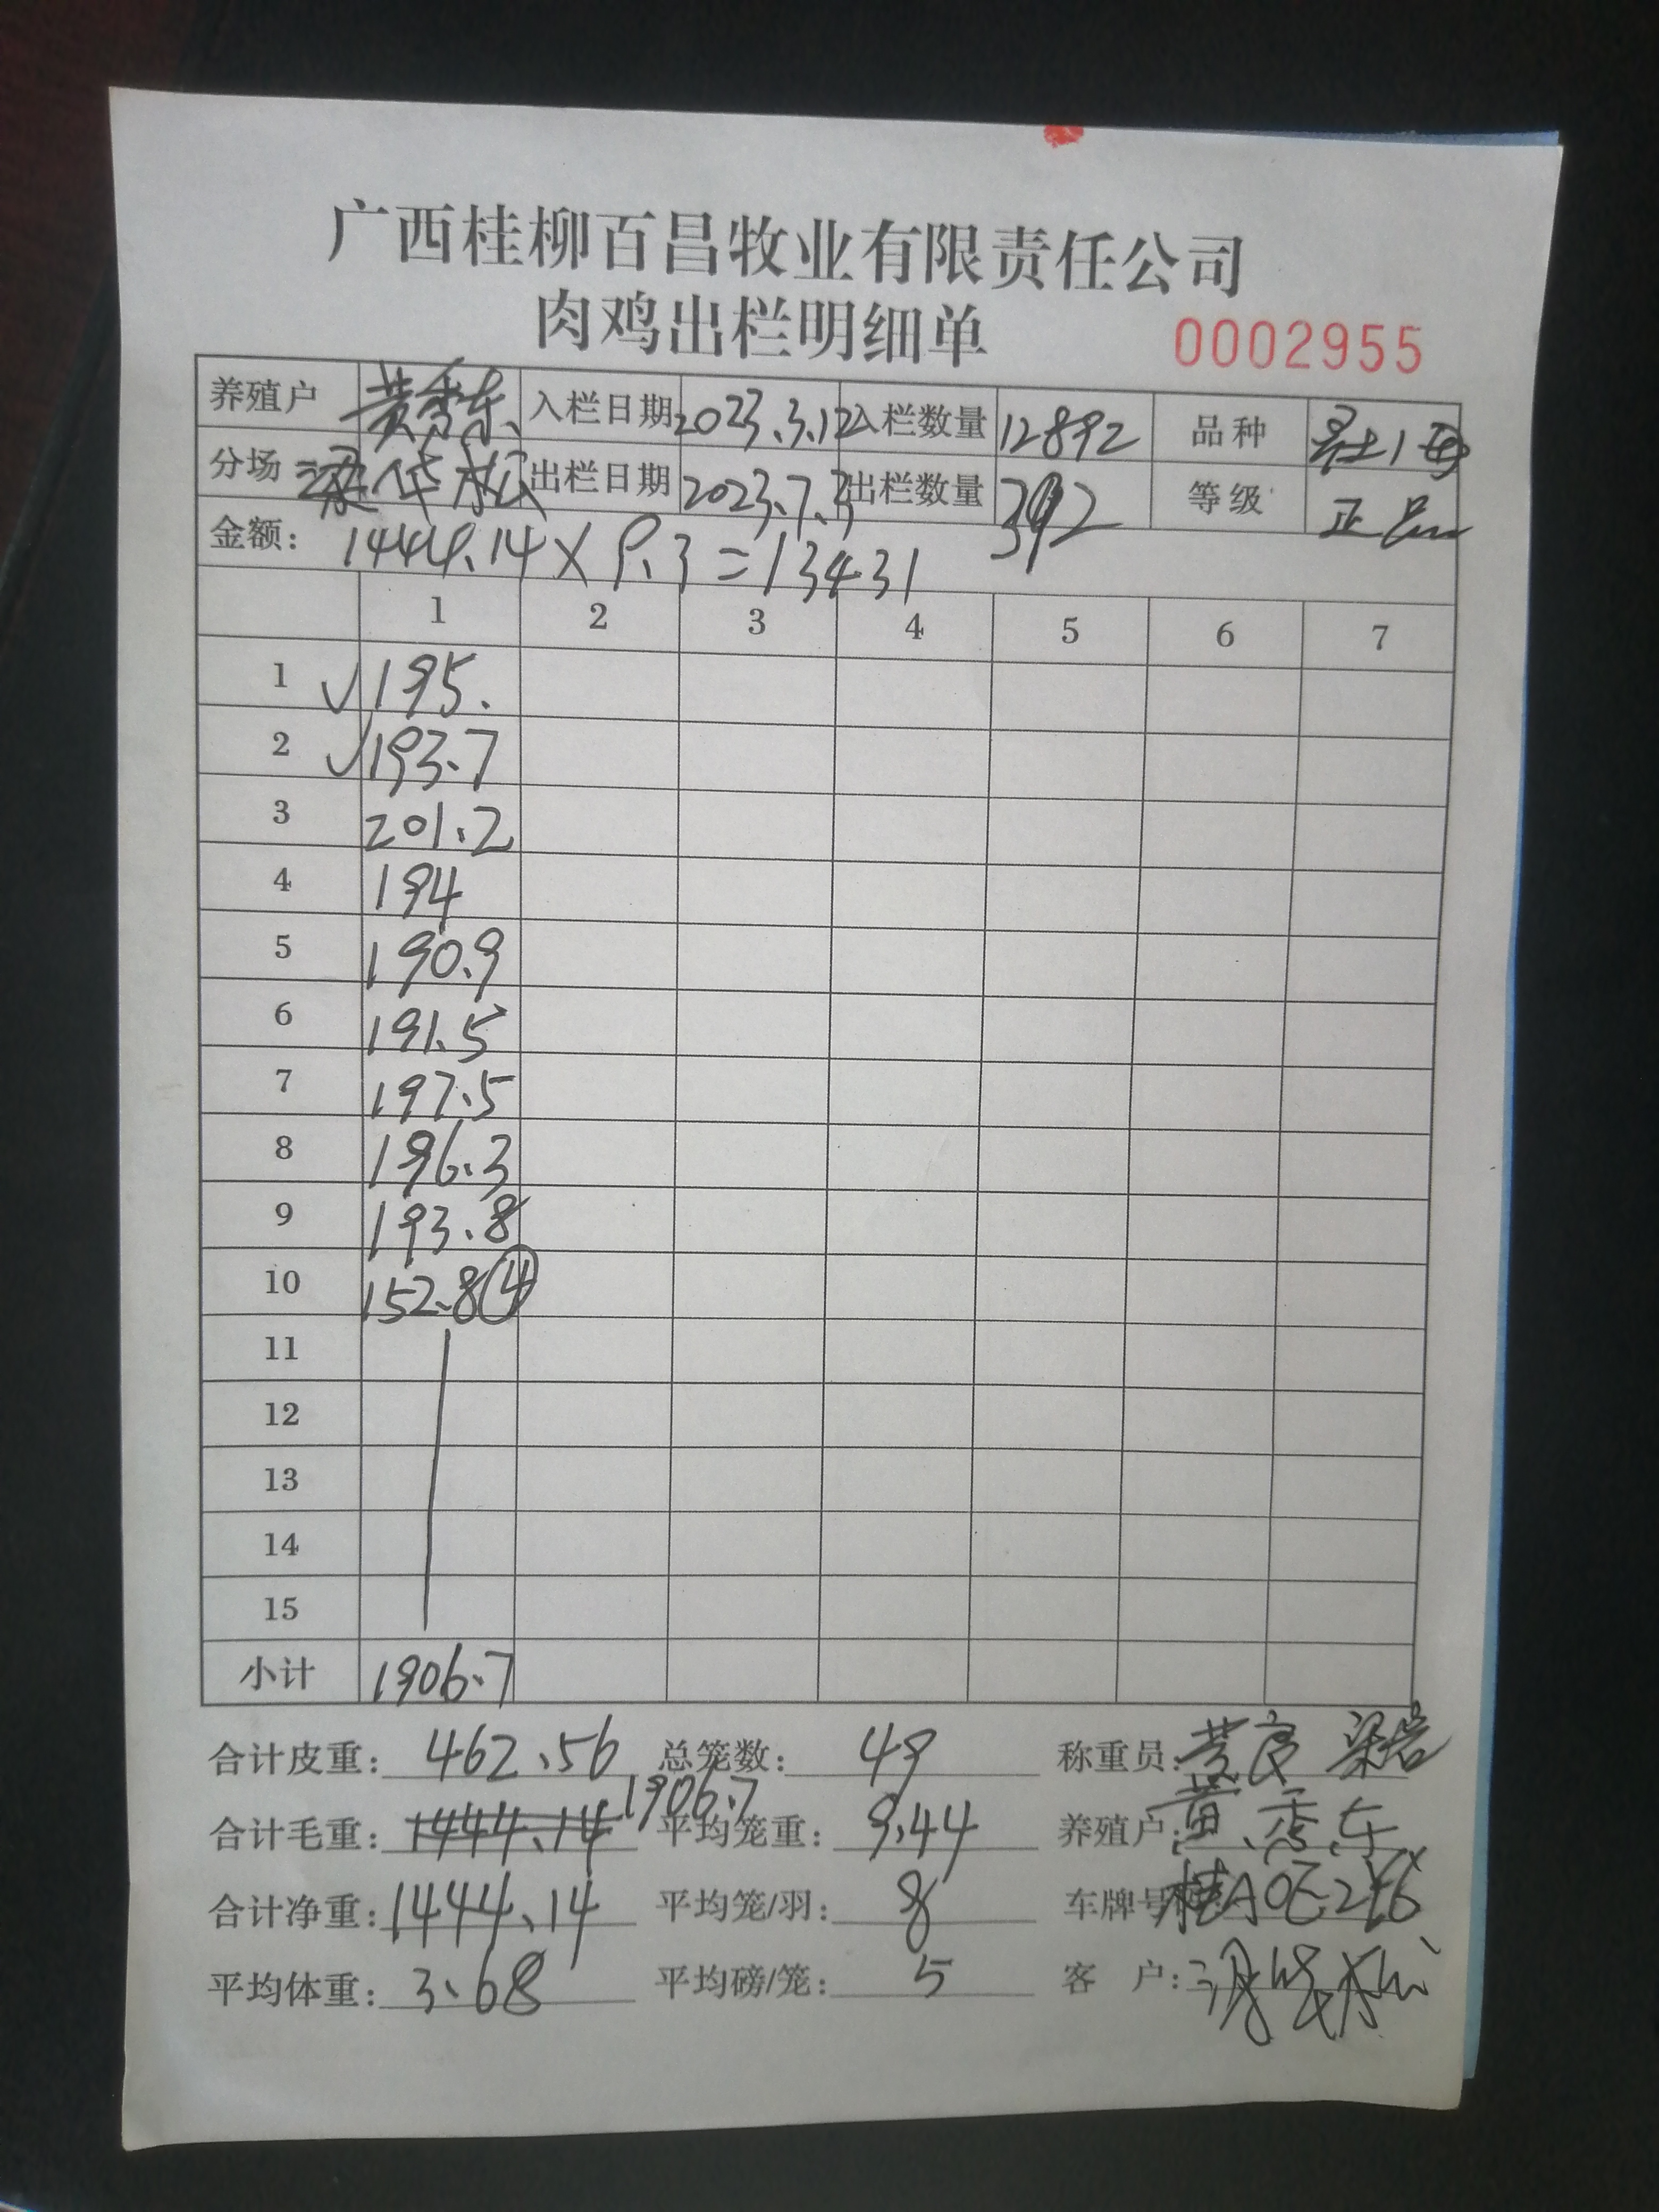 广西桂柳百昌牧业有限责任公司
肉鸡出栏明细单 0002955
养殖户 黄秀东 入栏日期 2023.3.12 入栏数量 12892 品种
分场 梁华松 出栏日期 2023.7.3 出栏数量 392 等级 正品
金额: 1444.14×9.3=13431
1 2 3 4 5 6 7
1 √195.
2 √193.7
3 201.2
4 194
5 190.9
6 191.5
7 197.5
8 196.3
9 193.8
10 152.8④
11
12
13
14
15
小计 1906.7
合计皮重: 462.56 总笼数: 49 称重员:
合计毛重: 1444.14 1906.7 平均笼重: 9.44 养殖户: 黄秀东
合计净重: 1444.14 平均笼/羽: 8 车牌号码:
平均体重: 3.68 平均磅/笼: 5 客户: